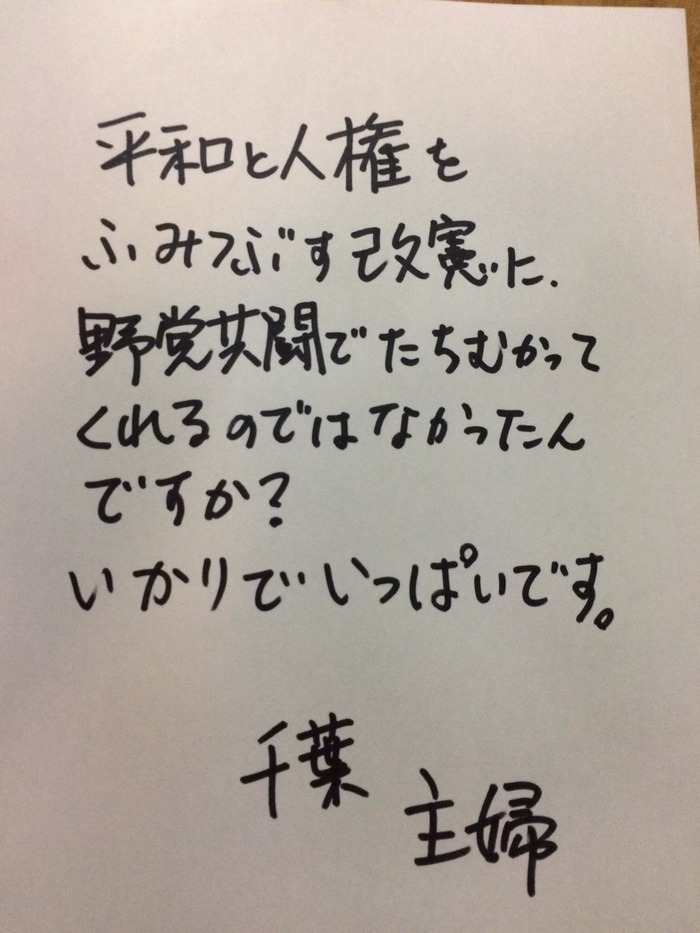 平和と人権を
ふみつぶす改憲に、
野党共闘でたちむかって
くれるのではなかったん
ですか？
いかりでいっぱいです。
千葉
主婦